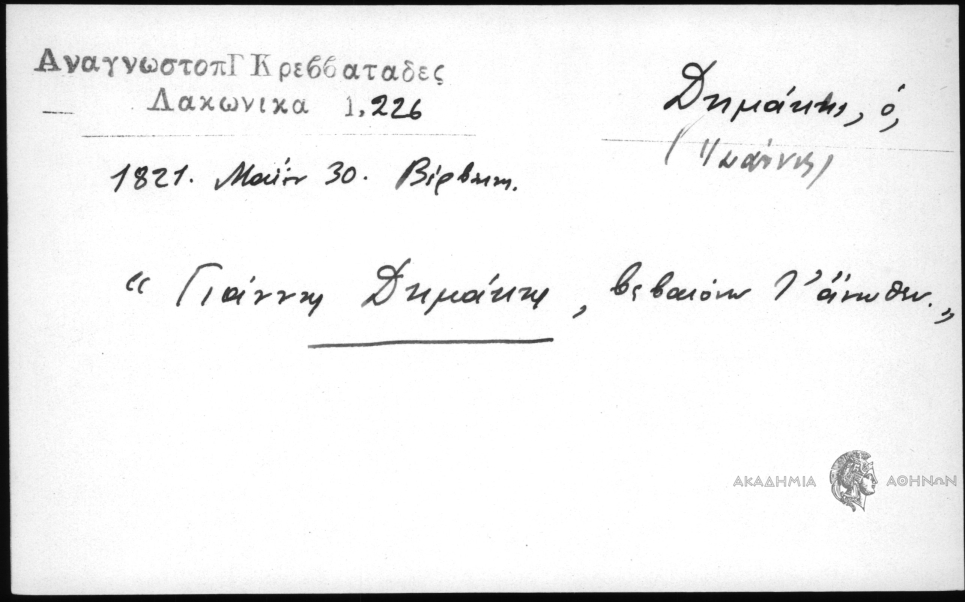 ΑναγνωστοπΓ Κρεββαταδες
Λακωνικα 1,226
Δημάκης, ὁ,
(Ἰωάννης)
1821. Μαΐου 30. Βέρβενα.
“ Γιάννης Δημάκης, βεβαιόνω τ' ἄνωθεν. „
ΑΚΑΔΗΜΙΑ ΑΘΗΝΩΝ